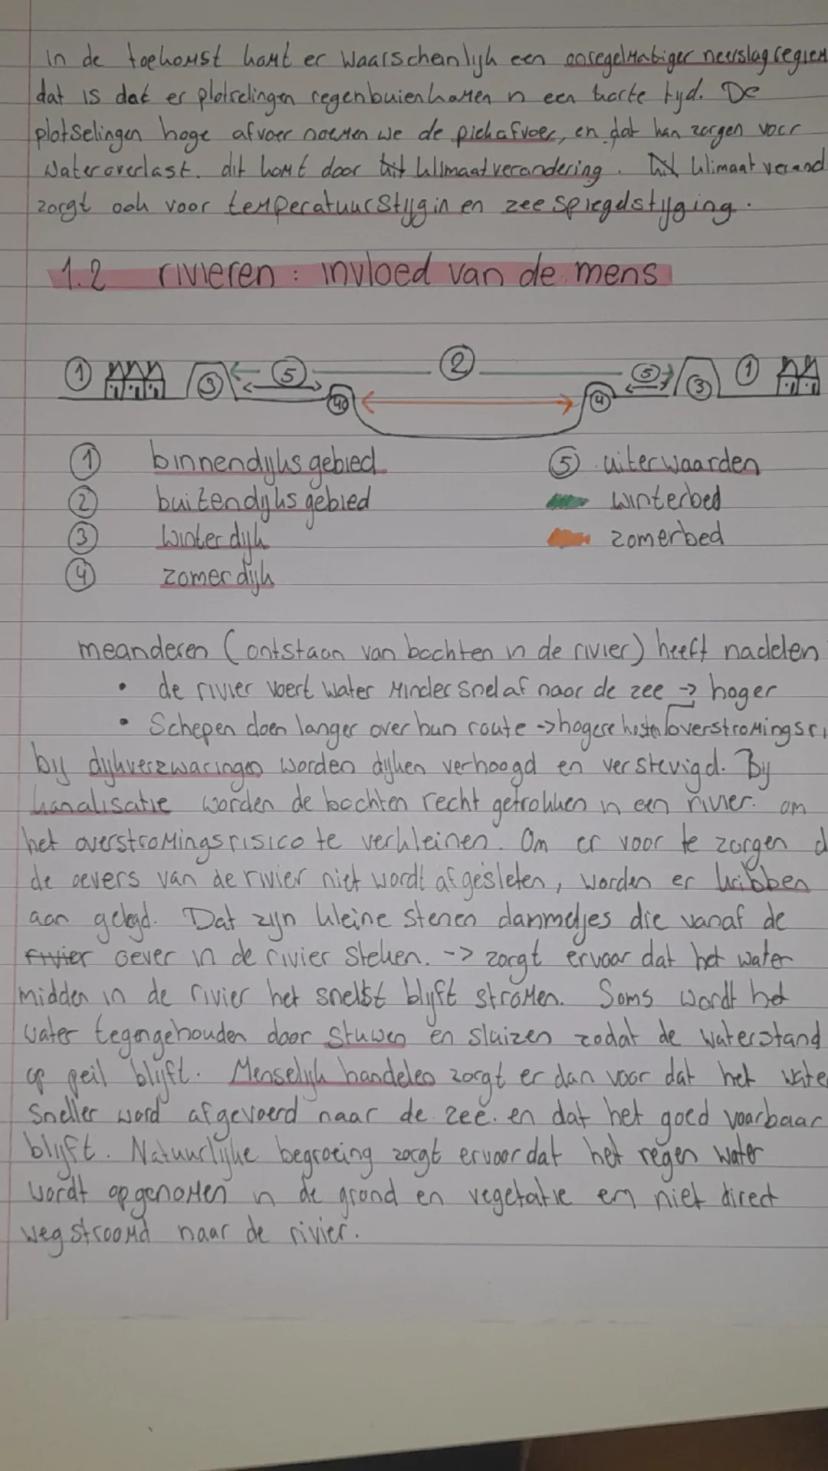 in de toekomst komt er waarschenlijk een onregelmatiger neerslagregiem
dat is dat er plotselingen regenbuien komen in een korte tijd. De
plotselingen hoge afvoer noemen we de piekafvoer, en dat kan zorgen voor
Wateroverlast. dit komt door klimaatverandering. klimaatverand
zorgt ook voor temperatuurstijgin en zeespiegelstijging.
1.2 rivieren: invloed van de mens
1 3 5 2 5 3 1
4 4
1 binnendijks gebied 5 uiterwaarden
2 buitendijks gebied winterbed
3 winterdijk zomerbed
4 zomerdijk
meanderen (ontstaan van bochten in de rivier) heeft nadelen
• de rivier voert water minder snel af naar de zee -> hoger
• Schepen doen langer over hun route -> hogere kosten overstromingsri
bij dijkverzwaringen worden dijken verhoogd en verstevigd. Bij
kanalisatie worden de bochten recht getrokken in een rivier. om
het overstromingsrisico te verkleinen. Om er voor te zorgen d
de oevers van de rivier niet wordt afgesleten, worden er kribben
aan gelegd. Dat zijn kleine stenen dammetjes die vanaf de
rivier oever in de rivier steken. -> zorgt ervoor dat het water
midden in de rivier het snelst blijft stromen. Soms wordt het
water tegengehouden door stuwen en sluizen zodat de waterstand
op peil blijft. Menselijk handelen zorgt er dan voor dat het wate
sneller word afgevoerd naar de zee. en dat het goed vaarbaar
blijft. Natuurlijke begroeing zorgt ervoor dat het regen water
wordt opgenomen in de grond en vegetatie en niet direct
weg stroomd naar de rivier.